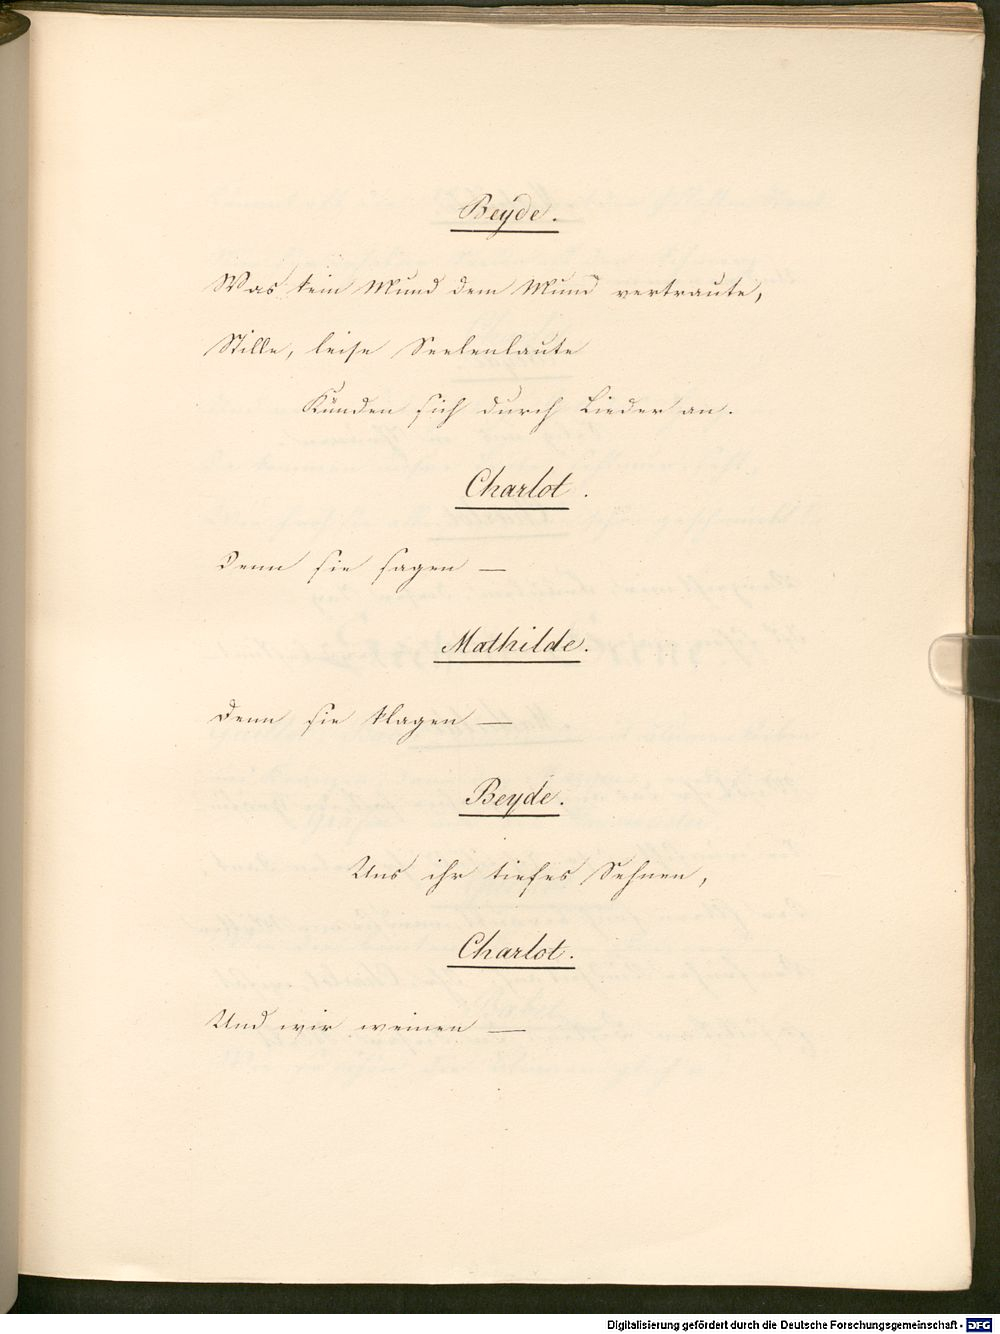 Beyde.
Was kein Mund dem Mund vertraute,
Stille, leise Seelenlaute
Künden sich durch Lieder an.
Charlot.
Denn sie sagen —
Mathilde.
Denn sie klagen —
Beyde.
Uns ihr tiefes Sehnen,
Charlot.
Und wir weinen —
Digitalisierung gefördert durch die Deutsche Forschungsgemeinschaft - DFG